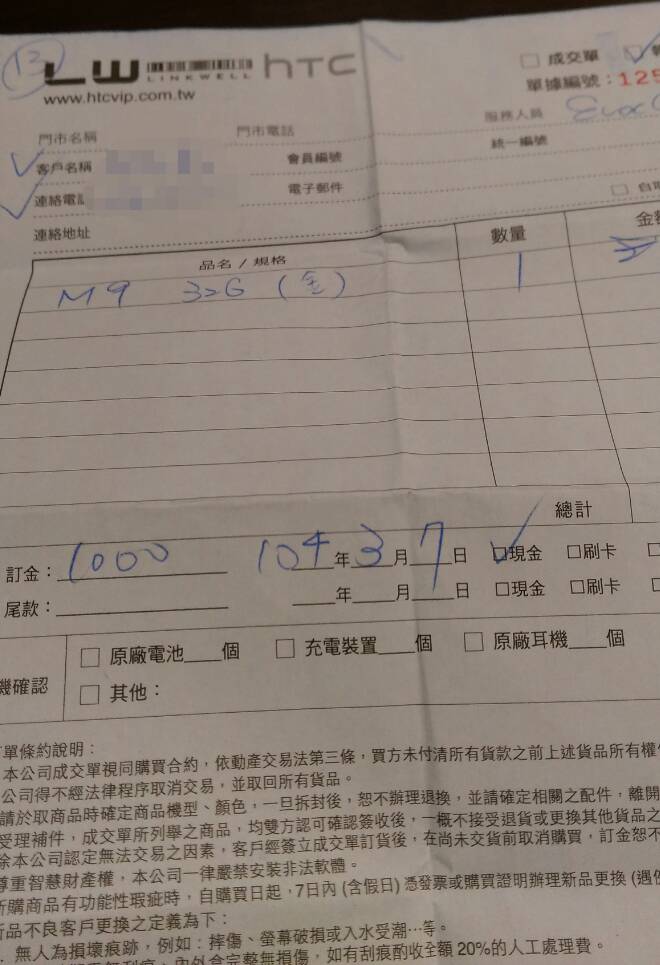 13 LW LINKWELL hTC
www.htcvip.com.tw
□ 成交單
單據編號：125
服務人員
門市名稱 門市電話
客戶名稱 會員編號 統一編號
連絡電話 電子郵件 □ 自取
連絡地址
品名 / 規格 數量 金額
M9 32G (金) 1
總計
訂金：1000 104年3月7日 □現金 □刷卡 □
尾款： 年 月 日 □現金 □刷卡 □
機確認 □ 原廠電池 個 □ 充電裝置 個 □ 原廠耳機 個
□ 其他：
單條約說明：
本公司成交單視同購買合約，依動產交易法第三條，買方未付清所有貨款之前上述貨品所有權
公司得不經法律程序取消交易，並取回所有貨品。
請於取商品時確定商品機型、顏色，一旦拆封後，恕不辦理退換，並請確定相關之配件，離開
受理補件，成交單所列舉之商品，均雙方認可確認簽收後，一概不接受退貨或更換其他貨品之
除本公司認定無法交易之因素，客戶經簽立成交單訂貨後，在尚未交貨前取消購買，訂金恕不
尊重智慧財產權，本公司一律嚴禁安裝非法軟體。
所購商品有功能性瑕疵時，自購買日起，7日內 (含假日) 憑發票或購買證明辦理新品更換 (遇
新品不良客戶更換之定義為下：
．無人為損壞痕跡，例如：摔傷、螢幕破損或入水受潮…等。
內外盒完整無損傷，如有刮痕酌收全額 20%的人工處理費。